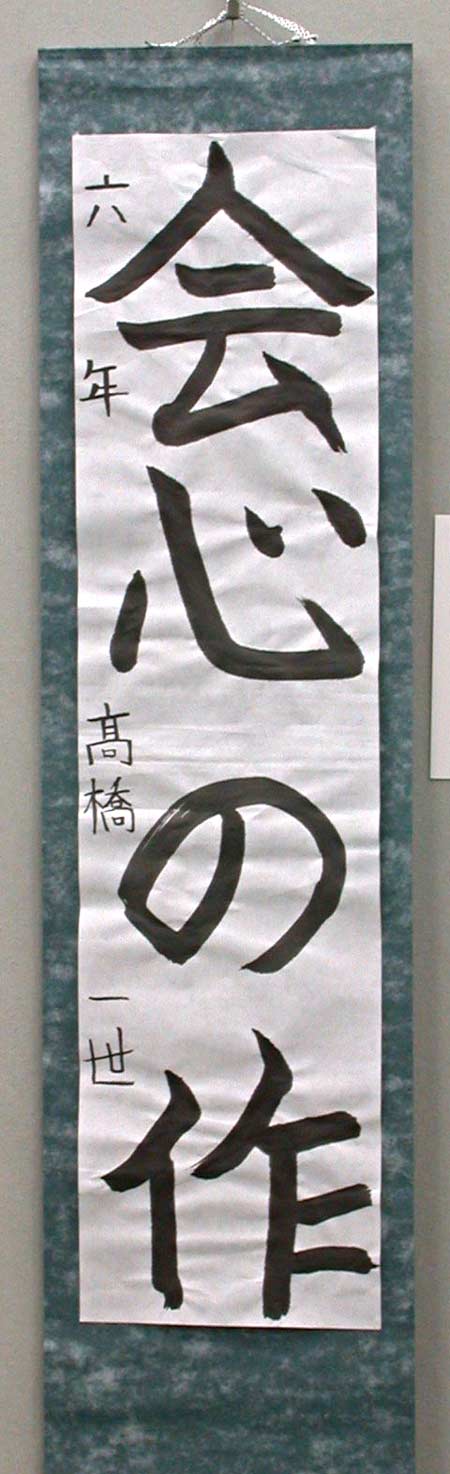 会心の作
六年 髙橋 一世